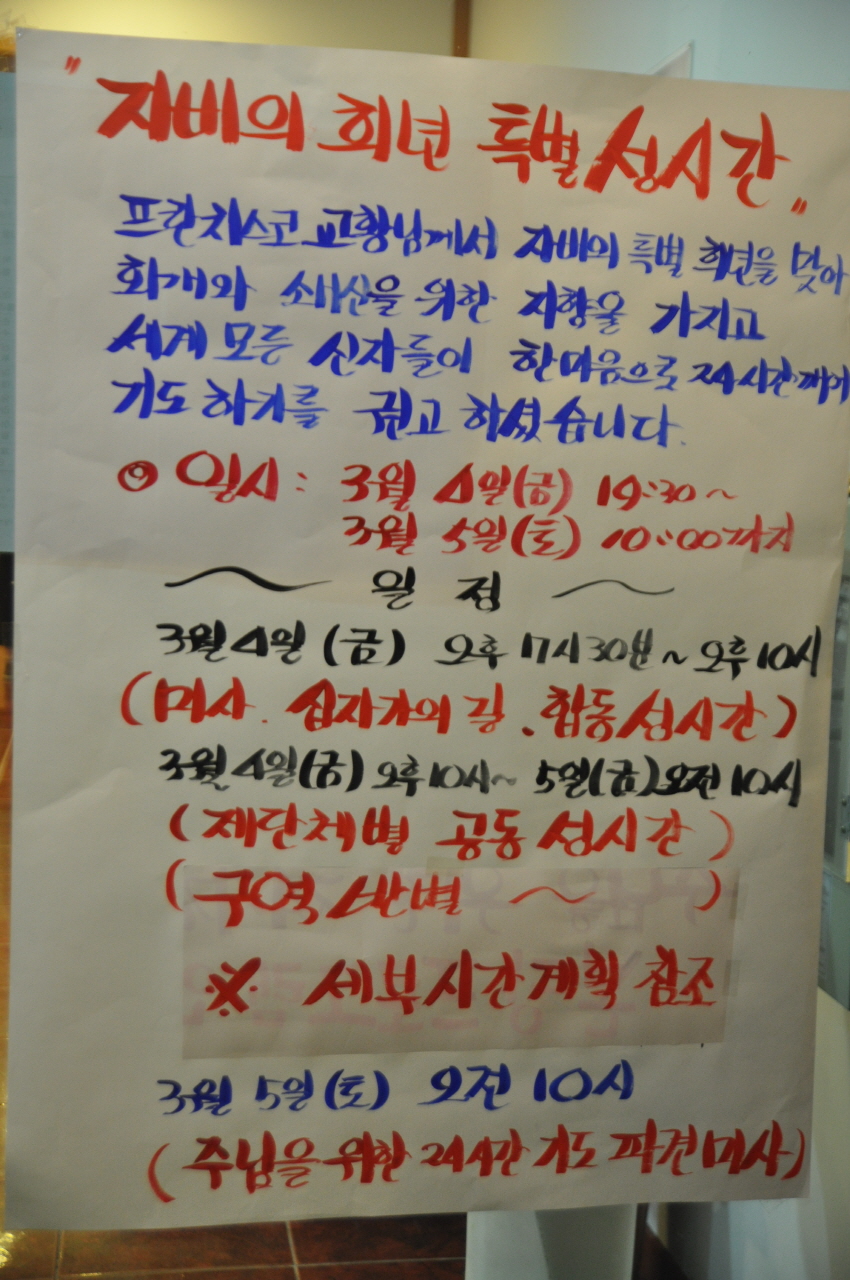 "자비의 희년 특별 성시간"
프란치스코 교황님께서 자비의 특별 희년을 맞아
회개와 쇄신을 위한 지향을 가지고
세계 모든 신자들이 한마음으로 24시간 깨어
기도하기를 권고 하셨습니다.
◎ 일시 : 3월 4일(금) 19:30~
3월 5일(토) 10:00까지
~ 일 정 ~
3월 4일 (금) 오후 17시 30분 ~ 오후 10시
(미사. 십자가의 길. 합동 성시간)
3월 4일(금) 오후 10시~ 5일(금) 오전 10시
(제단체별 공동 성시간)
(구역 반별 ~ )
※ 세부시간계획 참조
3월 5일(토) 오전 10시
(주님을 위한 24시간 기도 파견미사)